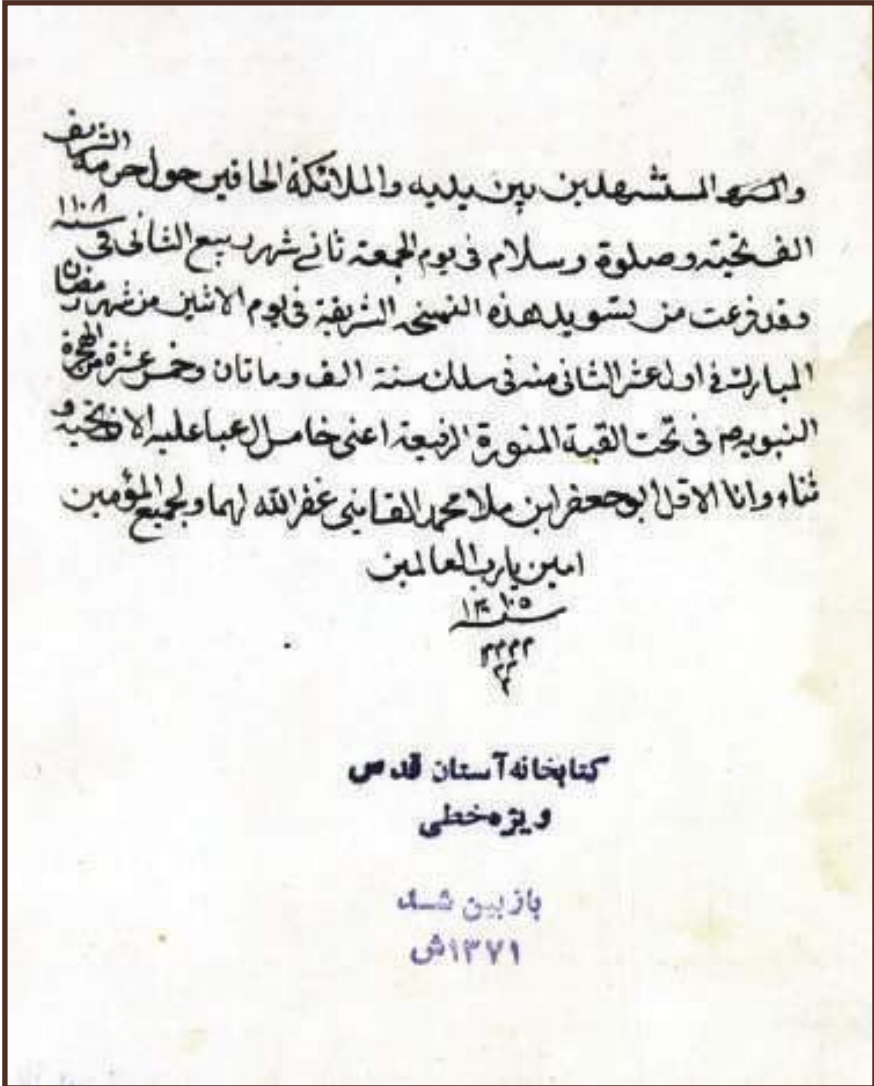 والشهداء المستشهدين بين يديه والملائكة الحافين حول حرمه الشريف
الف تحية وصلوة وسلام في يوم الجمعة ثاني شهر ربيع الثاني في سنه ١١٠٨
وقد فرغت من تسويد هذه النسخه الشريفة في يوم الاثنين من شهر رمضان
المبارك في اول عشر الثاني منه في سلك سنة الف وماتان وخمس عشرة من الهجرة
النبويه ص في تحت القبة المنورة الرفيعة اعني خامس ال عبا عليه الاف تحية و
ثناء وانا الاقل ابو جعفر ابن ملا محمد القايني غفر الله لهما ولجميع المؤمنين
امين يا رب العالمين
كتابخانه آستان قدس
ویژه خطی
بازبین شد
١٣٧١ش